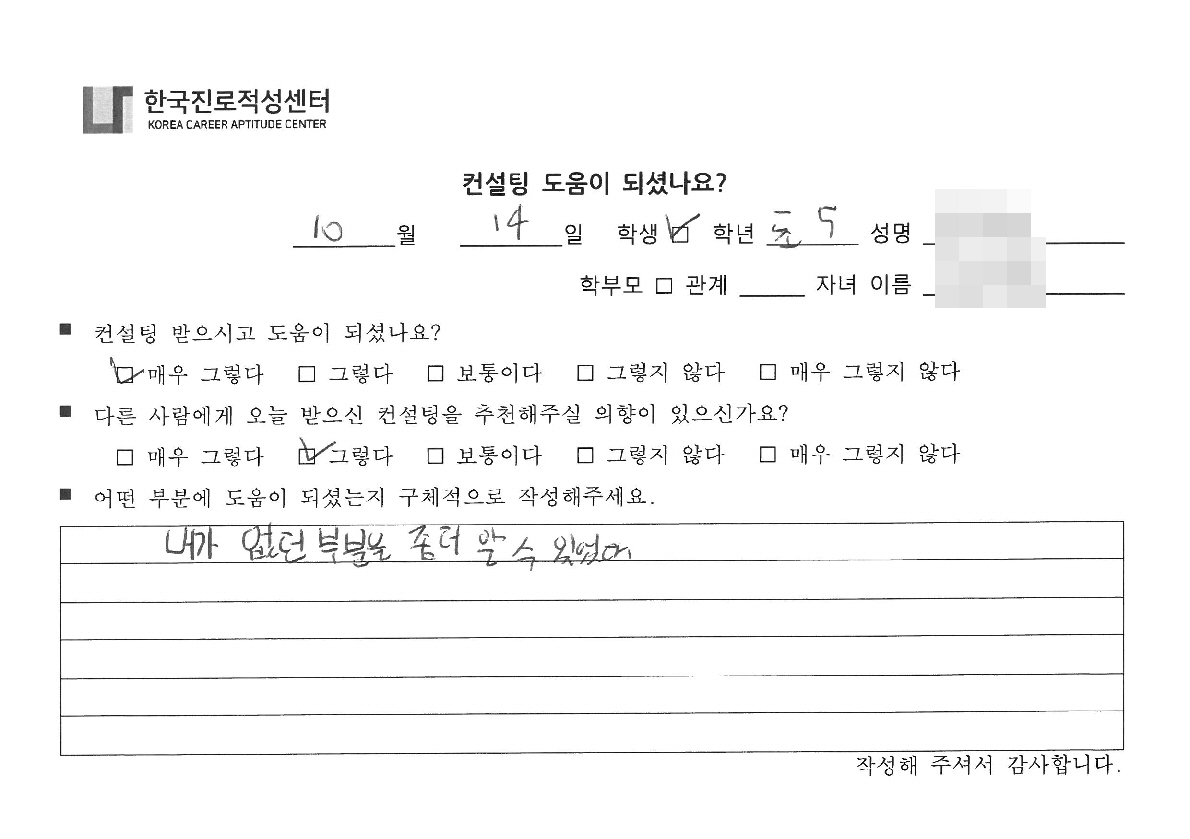 한국진로적성센터
KOREA CAREER APTITUDE CENTER
컨설팅 도움이 되셨나요?
10 월 14 일 학생 ☑ 학년 초 5 성명
학부모 □ 관계 자녀 이름
■ 컨설팅 받으시고 도움이 되셨나요?
☑ 매우 그렇다 □ 그렇다 □ 보통이다 □ 그렇지 않다 □ 매우 그렇지 않다
■ 다른 사람에게 오늘 받으신 컨설팅을 추천해주실 의향이 있으신가요?
□ 매우 그렇다 ☑ 그렇다 □ 보통이다 □ 그렇지 않다 □ 매우 그렇지 않다
■ 어떤 부분에 도움이 되셨는지 구체적으로 작성해주세요.
내가 없던 부분을 좀더 알 수 있었어
작성해 주셔서 감사합니다.